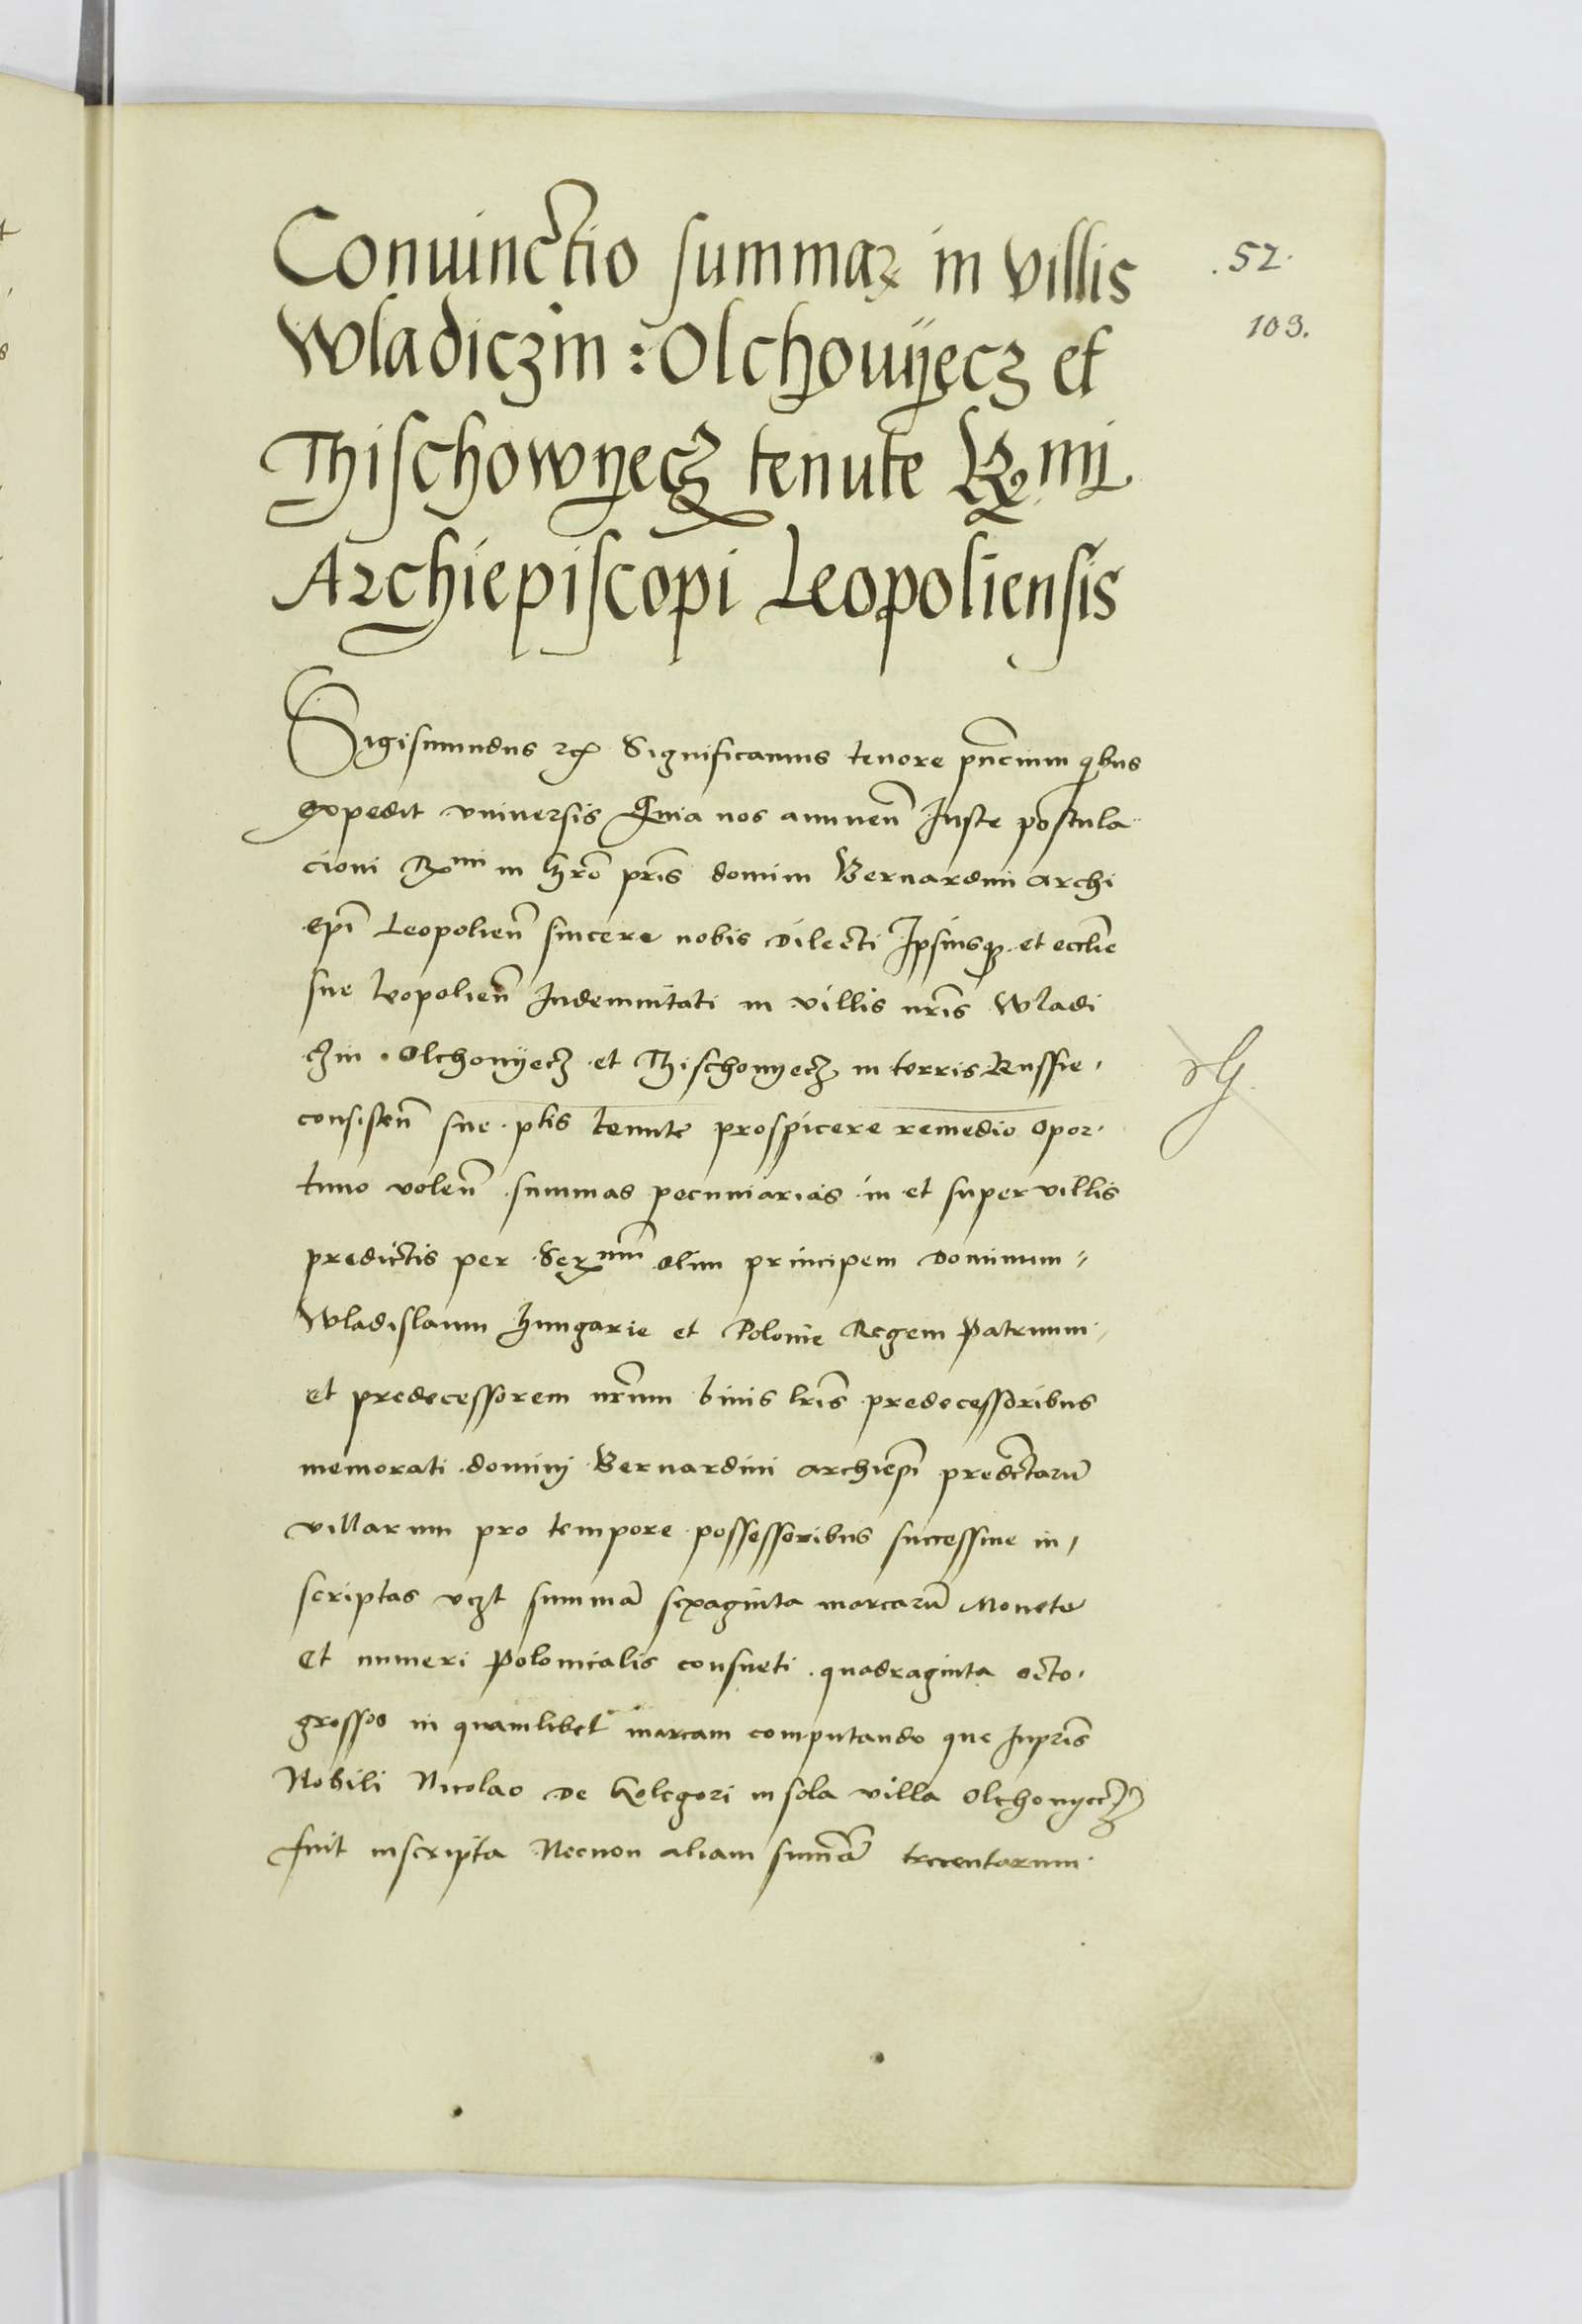 Conuinctio summaꝝ in villis
.52.
Wladiczin : Olchouÿecz et
103.
Thischowyecz tenute Rmi
Archiepiscopi Leopoliensis
Sigismundus rex Significamus tenore pn̄cium qbus
expedit vniuersis Quia nos annuen̄ Iuste postula
cioni Rmi in χr̄o pr̄is domini Bernardini archi
ep̄i Leopolien̄ sincere nobis dilecti Ipsiusqꝫ et eccl̄ie
sue leopolien̄ Indemnitati in villis nr̄is Wladi
czin . Olchouÿecz et Thischouyecz in terris Russie
consisten̄ sue pn̄tis tenute prospicere remedio opor
tuno volen̄ summas pecuniarias in et super villis
predictis per Serxmum̄ olim principem dominum
Wladislaum hungarie et Polonie Regem Patruum
et predecessorem nr̄um binis lr̄is predecessoribus
memorati dominj Bernardini archiep̄i predctarū
villarum pro tempore possessoribus successiue in
scriptas vczt summā sexaginta marcarū Monete
et numeri Polonicalis consueti quadraginta octo
grossos in quamlibet marcam computando que Inpr̄is
Nobili Nicolao de kolegori in sola villa Olchouyecz
fuit inscripta Necnon aliam summā trecentarum